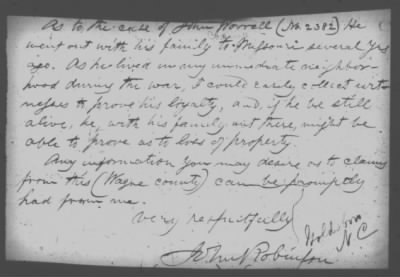 As to the case of John Worrell (No 2382) He
went out with his family to Missouri several yrs
ago. As he lived in my immediate neighbor-
hood during the war, I could easily collect wit-
nesses to prove his loyalty, and, if he be still
alive, he, with his family out there, might be
able to prove as to loss of property.
Any information you may desire as to claims
from this (Wayne county) can be promptly
had from me.
Very respectfully
John Robinson
Goldsboro
N.C